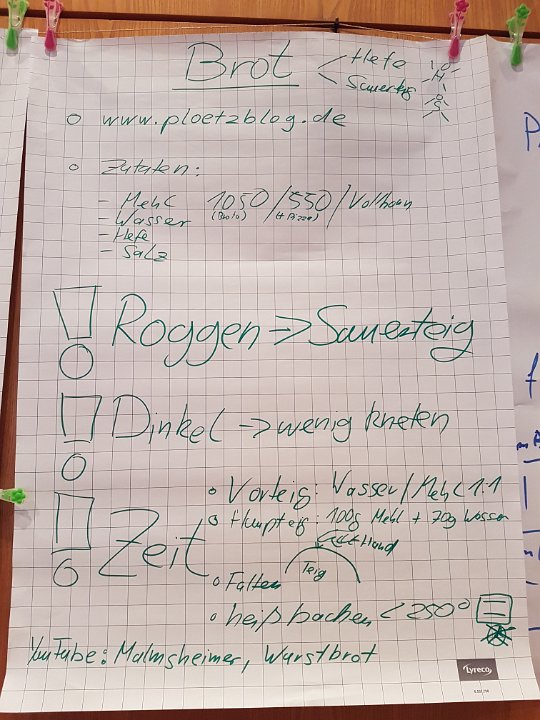 Brot < Hefe
Sauerteig
www.ploetzblog.de
Zutaten:
- Mehl 1050 / 550 / Vollkorn
- Wasser (Brot) (+ Pizza)
- Hefe
- Salz
! Roggen -> Sauerteig
! Dinkel -> wenig kneten
! Zeit
Vorteig: Wasser / Mehl 1:1
Hauptteig: 100g Mehl + 70g Wasser
Hand
Teig
Falten
heiß backen < 250°
YouTube: Malmsheimer, Wurstbrot
Lyreco